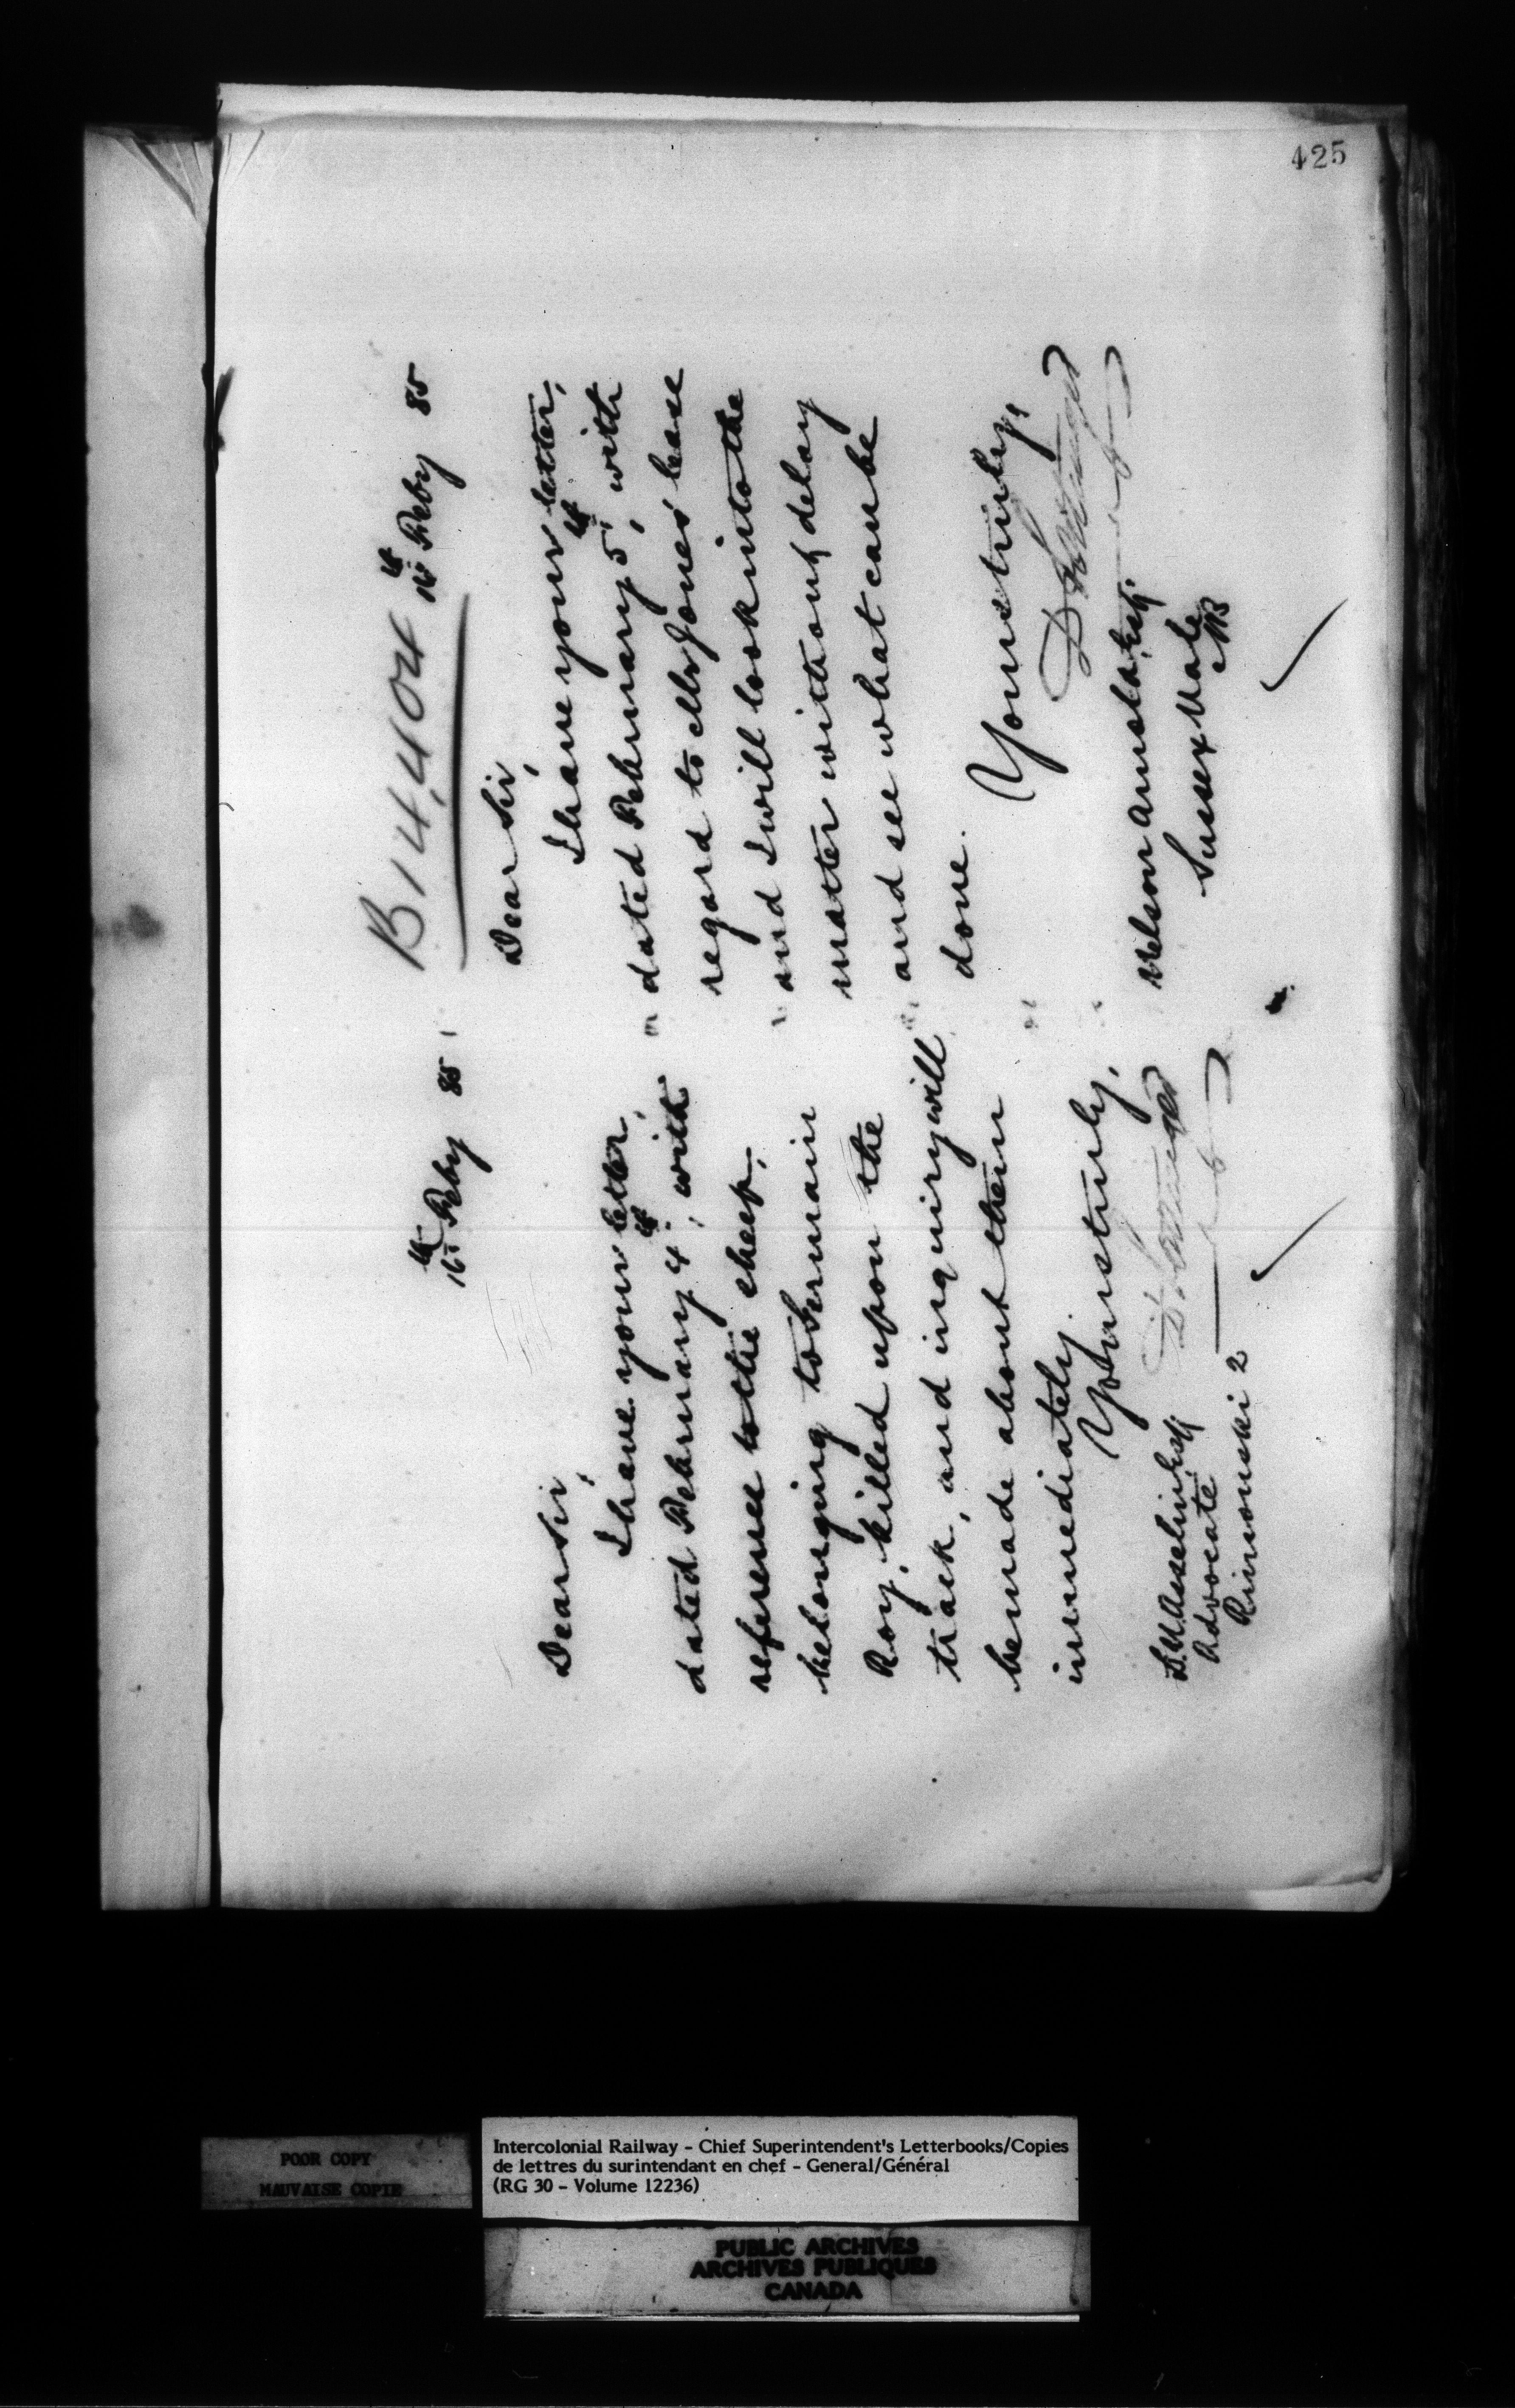 425
16th Feby 85
Dear Sir,
I have your letter,
dated February 4th, with
reference to the sheep,
belonging to Germain
Roy, killed upon the
track, and inquiry will
be made about them
immediately.
Yours truly,
L.N. Asselin Esq
Advocate
Rimouski 2
B 14,404
16th Feby 85
Dear Sir,
I have your letter,
dated February 5th, with
regard to Mr Jones' lease
and I will look into the
matter without delay
and see what can be
done.
Yours truly,
Nelson Arnold, Esq.
Sussex Vale
NB
POOR COPY
MAUVAISE COPIE
Intercolonial Railway - Chief Superintendent's Letterbooks/Copies
de lettres du surintendant en chef - General/Général
(RG 30 - Volume 12236)
PUBLIC ARCHIVES
ARCHIVES PUBLIQUES
CANADA